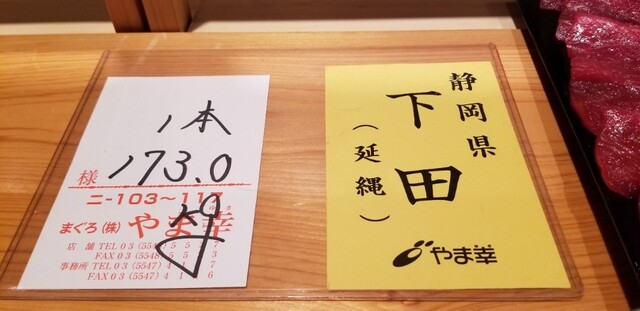 1本
173.0
様
ニ-103~117
まぐろ(株)やま幸
店舗 TEL03(55
FAX03(5548)55
事務所 TEL03(5547)4
FAX03(5547)4
静岡県
下田
(延縄)
やま幸